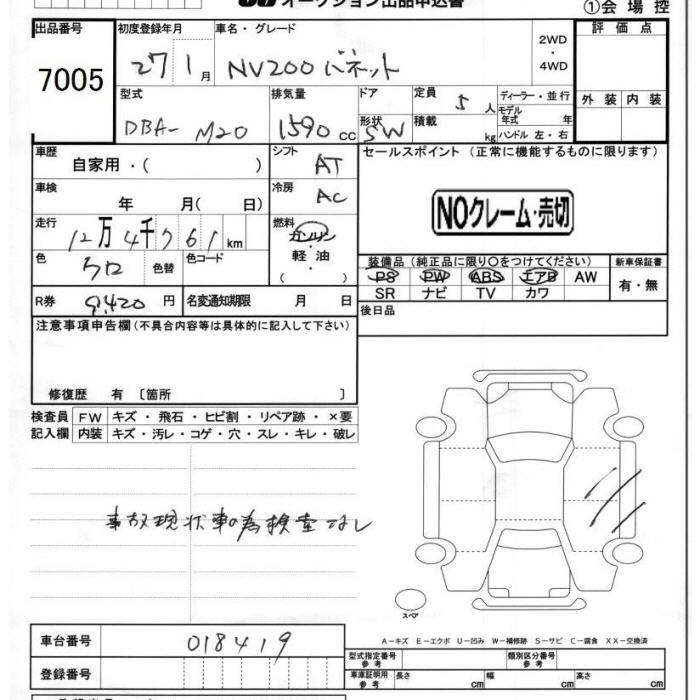 オークション出品申込書
①会場控
出品番号
7005
初度登録年月
27 1月
車名・グレード
NV200 バネット
2WD
・
4WD
評価点
外装 内装
型式
DBA- M20
排気量
1590 cc
ドア
5
形状
SW
定員
5 人
積載
kg
ディーラー・並行
モデル
年式 年
ハンドル 左・右
車歴
自家用・( )
シフト
AT
車検
年 月( 日)
冷房
AC
走行
12万4千761km
燃料
ガソリン
・
軽油
( )
色
クロ
色替
色コード
R券
9,420円
名変通知期限 月 日
セールスポイント (正常に機能するものに限ります)
NOクレーム・売切
装備品(純正品に限り○をつけてください)
PS PW ABS エアB AW
SR ナビ TV カワ
新車保証書
有・無
後日品
注意事項申告欄(不具合内容等は具体的に記入して下さい)
修復歴 有 〔箇所 〕
検査員 FW キズ・飛石・ヒビ割・リペア跡・×要
記入欄 内装 キズ・汚レ・コゲ・穴・スレ・キレ・破レ
事故現状車の為検査なし
スペア
A―キズ E―エクボ U―凹み W―補修跡 S―サビ C―腐食 XX―交換済
車台番号
018419
登録番号
型式指定番号
参考
類別区分番号
参考
車庫証明用
参考
長さ cm
幅 cm
高さ cm